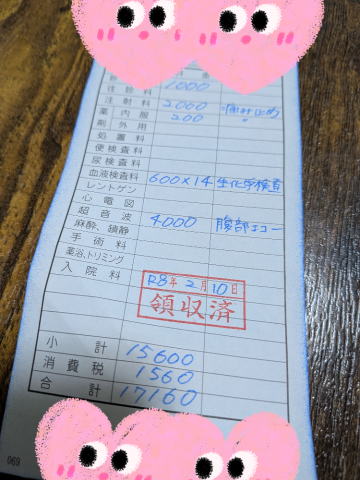 1,000
注射料 2,000 嘔吐止め
薬内服 200 〃
剤外用
処置料
便検査料
尿検査料
血液検査料 600×14 生化学検査
レントゲン
心電図
超音波 4,000 腹部エコー
麻酔、鎮静
手術料
薬浴、トリミング
入院料
R8年2月10日
領収済
小計 15600
消費税 1560
合計 17160
069